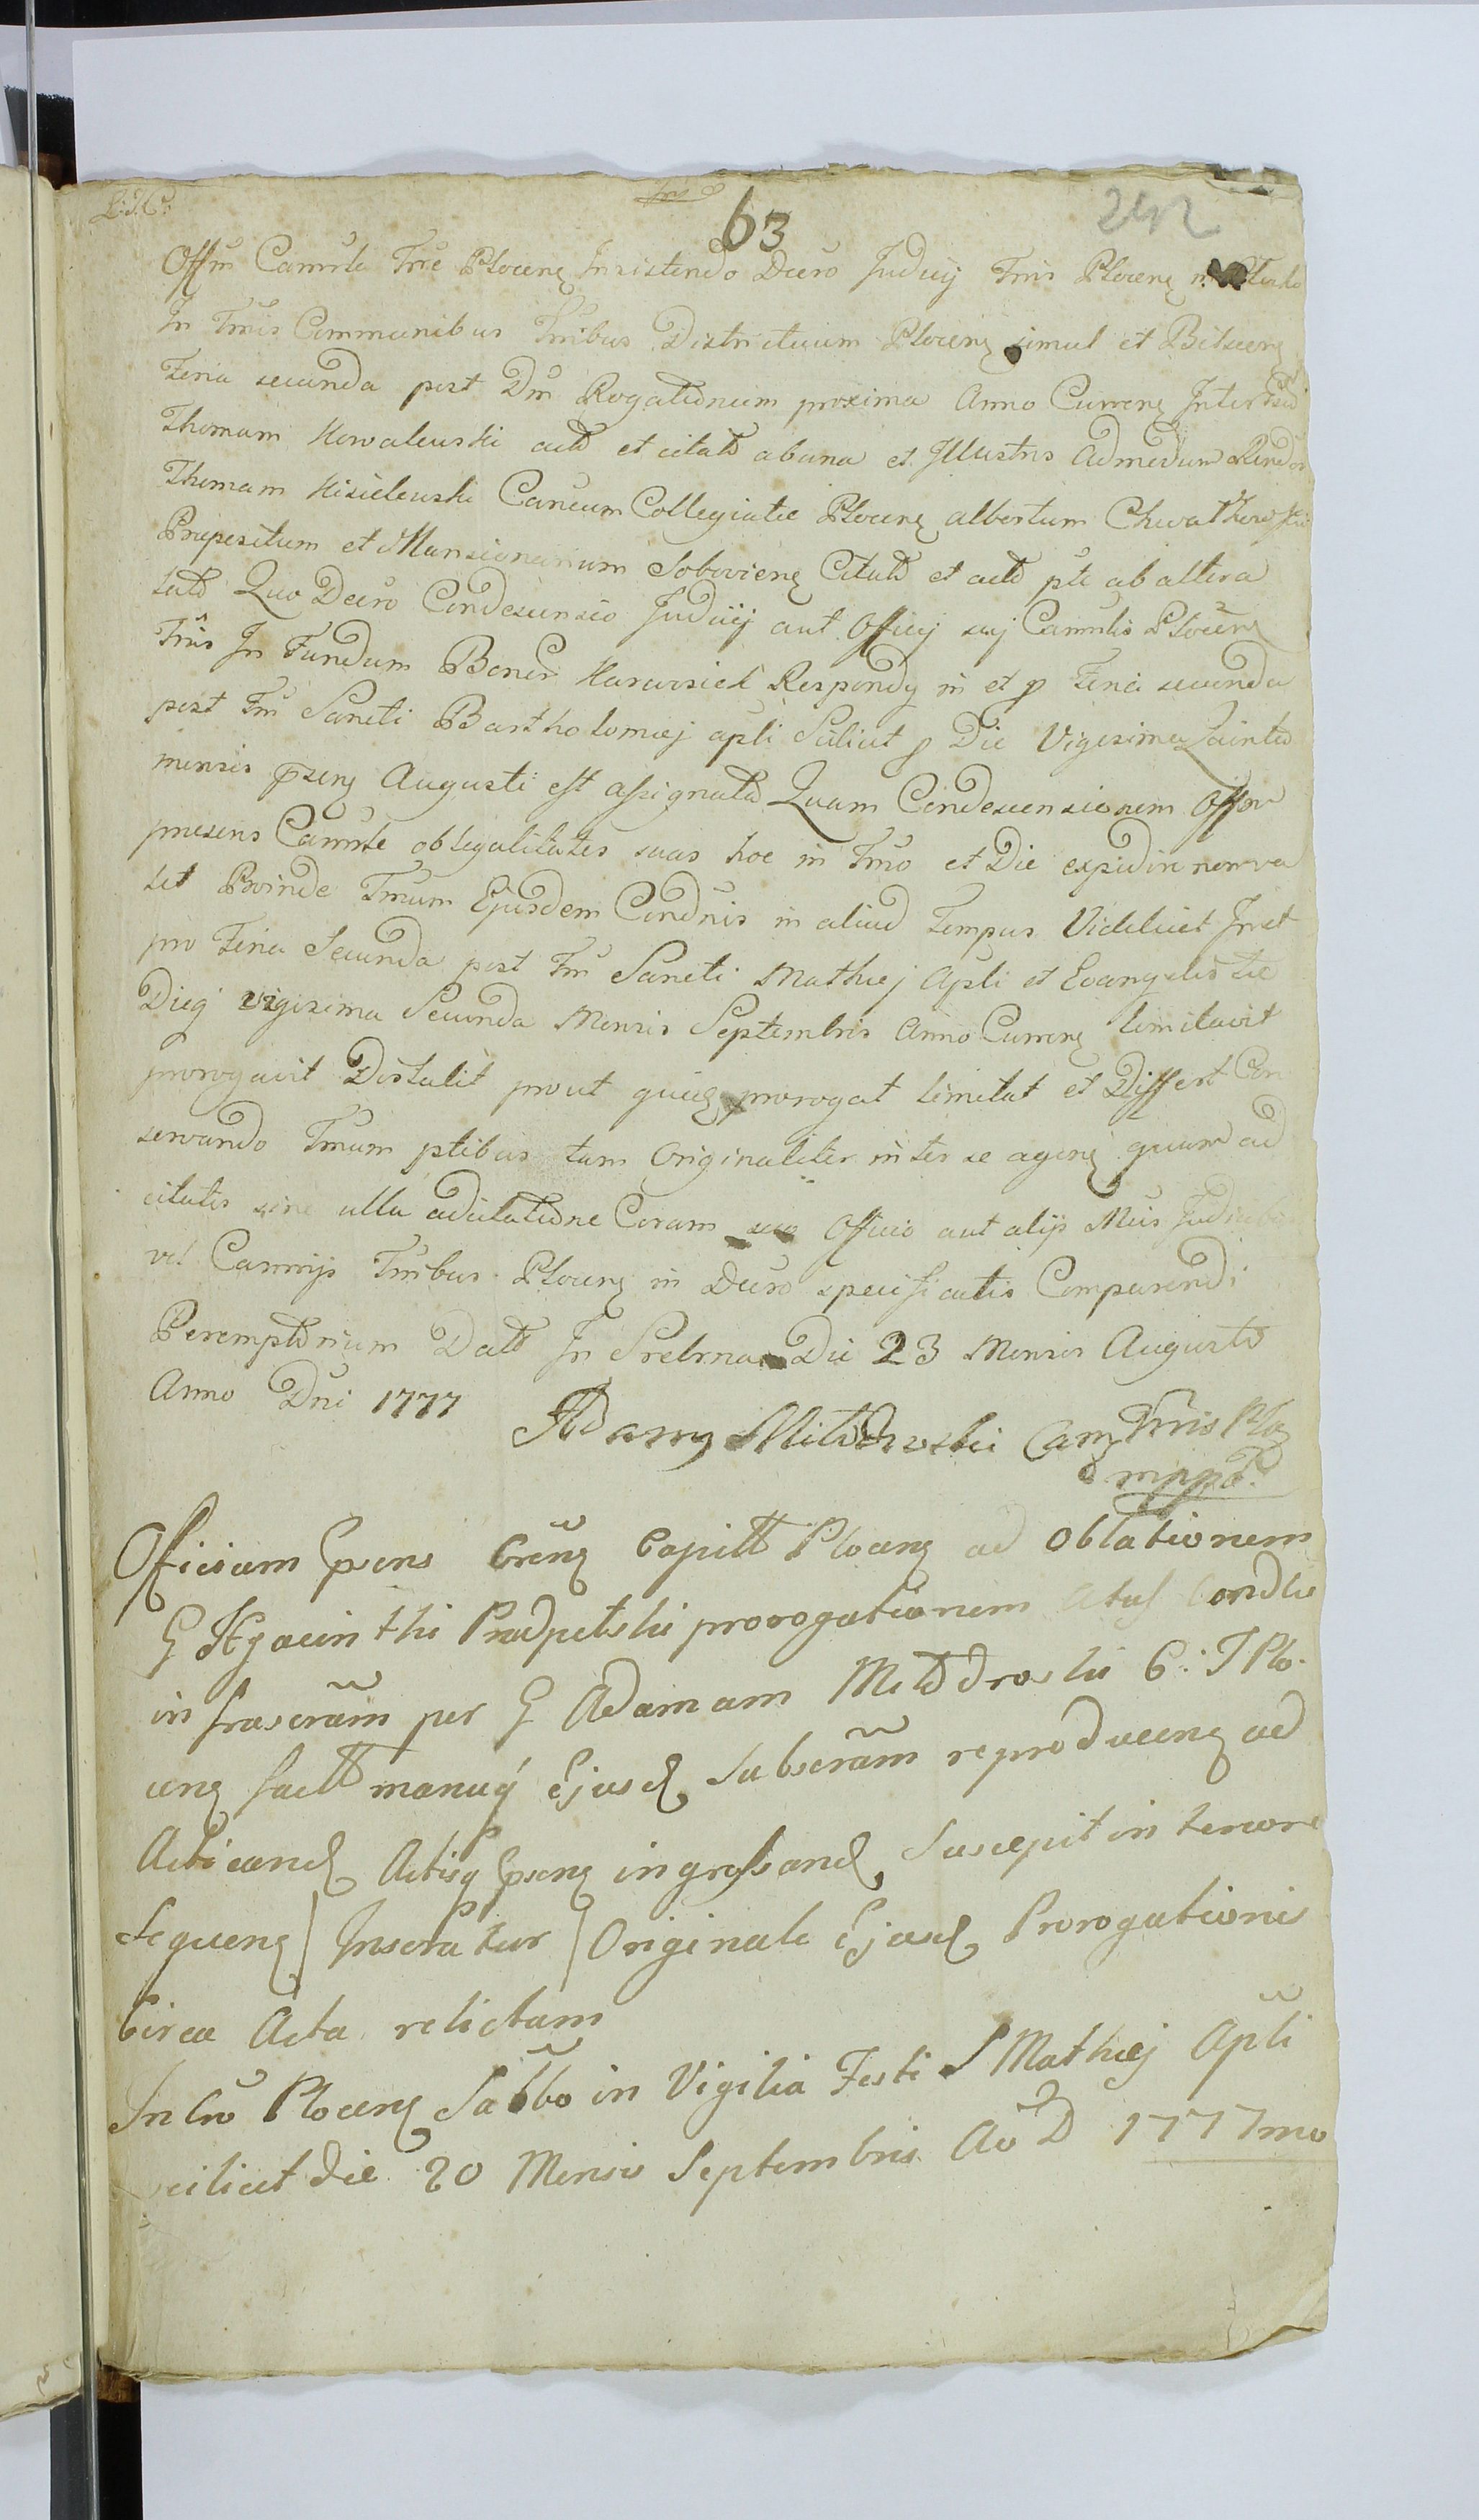 63
242
Offm Camrle Trre Plocenę Insistendo Decro Judicij Tris Plocenę
In Trmis Communibus Tribus Districtuum Plocenę simul et Bilscenę
Feria secunda post Dm Rogationum proxima Anno Currenę Inter
Thomam Kowalewski actd et citatd ab una et Illustris Admodum Rendos
Thomam Kisielewski Cancum Collegiatæ Plocenę Albertum Chwathowski
Præpositum et Mansionarium Sobovienę Citatd et actd pte ab altera
latd Quo Decro Condescensio Judicij aut Officij suj Camrlis Plocenę
Tris In Fundum Bonor Karwosieki Respondę in et p Feria secunda
post Fm Sancti Bartholomæj apli Scilicet p Die Vigesima Quinta
mensis pszenę Augusti est assignatd Quam Condescensionem Offm
præsens Camrle ob legalitates suas hoc in Trmo et Die expedire non va
let Proinde Trmum Ejusdem Condnis in aliud Tempus Videlicet
pro Feria Secunda post Fm Sancti Mathæj Apli et Evangelistæ
Dieq vigesima Secunda Mensis Septembris Anno Currenę limitavit
prorogavit Distulit prout quidę prorogat limitat et Differt Con
servando Trmum ptibus tam Originaliter inter se agenę quam ad
citatis sine ulla adcitatione Coram suo Officio aut alijs
vel Camrijs Tribus Plocenę in Decro specificatis Comparendi
Peremptorium Datd In Srebrna Die 23 Mensis Augusti
Anno Dni 1777
Adamę Młodzowski Camę Tris Ploę
mppa
Officium Cpsens Crenę Capitt Plocenę ad oblationem
G Hyacinthi Podpetski prorogationem Condlis
infrascram per G Adamam 6: T Plo.
cenę factt manuq Ejusd Subscram reproducenę ad
Acticand Actisq Cpsenę ingrossand Suscepit in tenore
sequenę | Inseratur | Originale Ejusd Prorogationis
Circa Acta relictam
In Cro Plocenę Sabbo in Vigilia Festi S Mathæj Apli
scilicet die 20 Mensis Septembris Ao D 1777mo